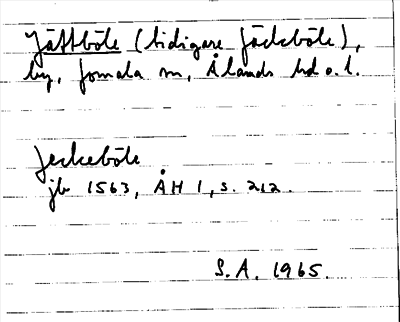 Jättböle (tidigare Jäckböle),
by, Jomala sn, Ålands hd o. l.
Jeckeböle
jb 1563, ÅH 1, s. 212.
S.A. 1965.